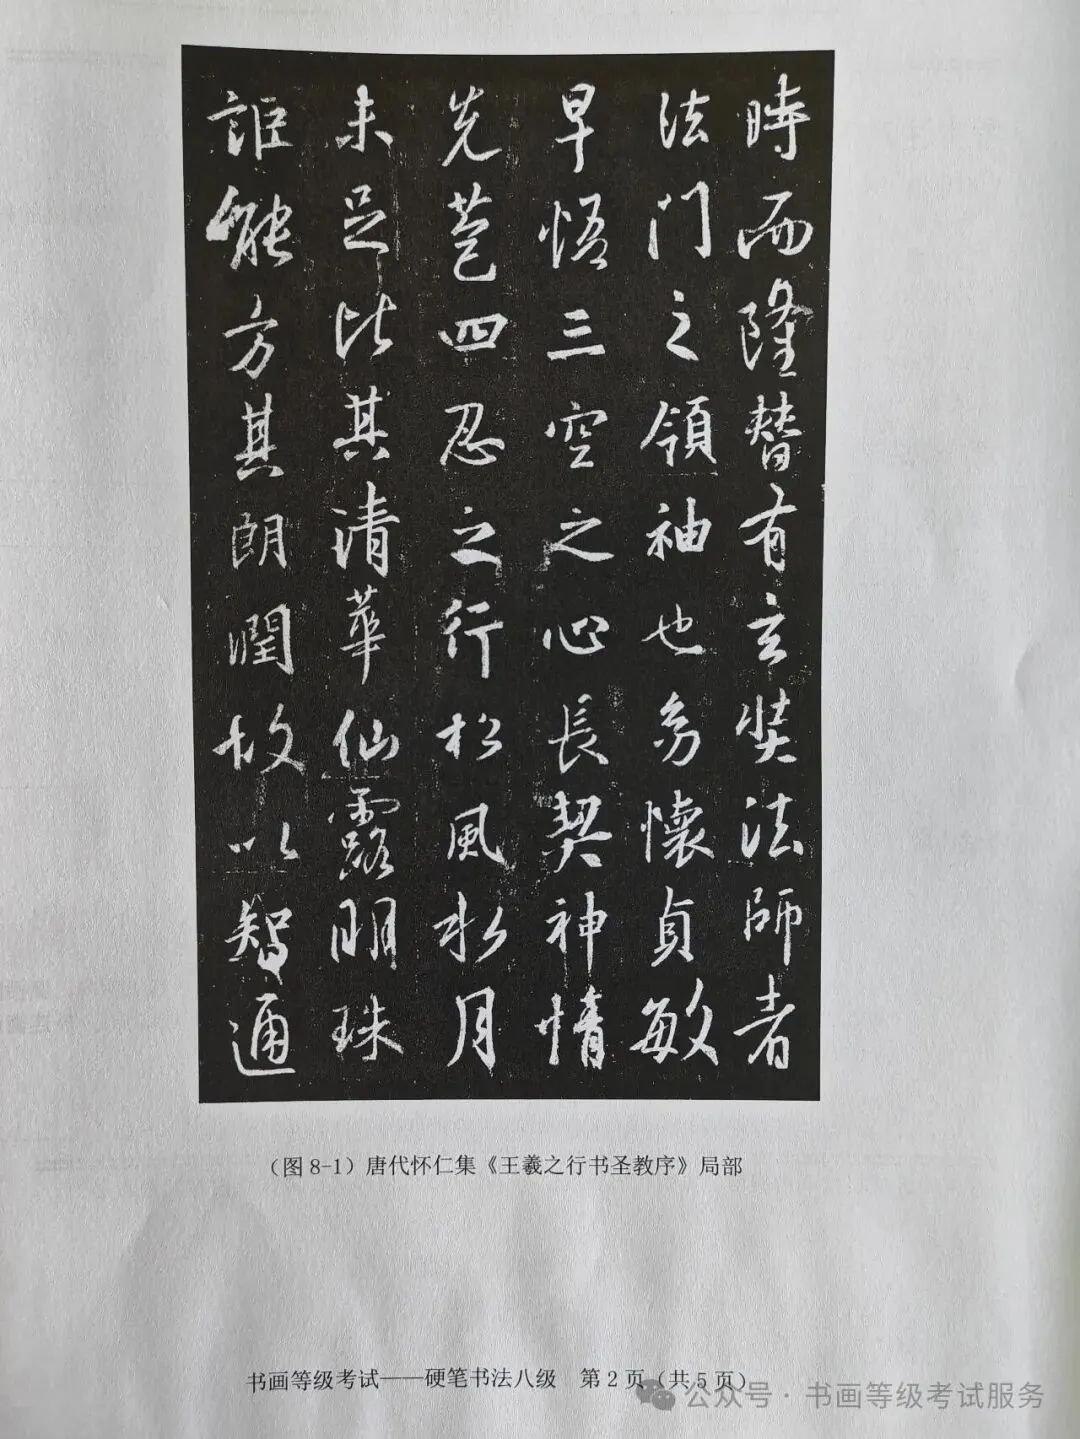 時而隆替有玄奘法師者
法門之領袖也幼懷貞敏
早悟三空之心長契神情
先苞四忍之行松風水月
未足比其清華仙露明珠
詎能方其朗潤故以智通
（图 8-1）唐代怀仁集《王羲之行书圣教序》局部
书画等级考试——硬笔书法八级 第 2 页（共 5 页）
公众号·书画等级考试服务